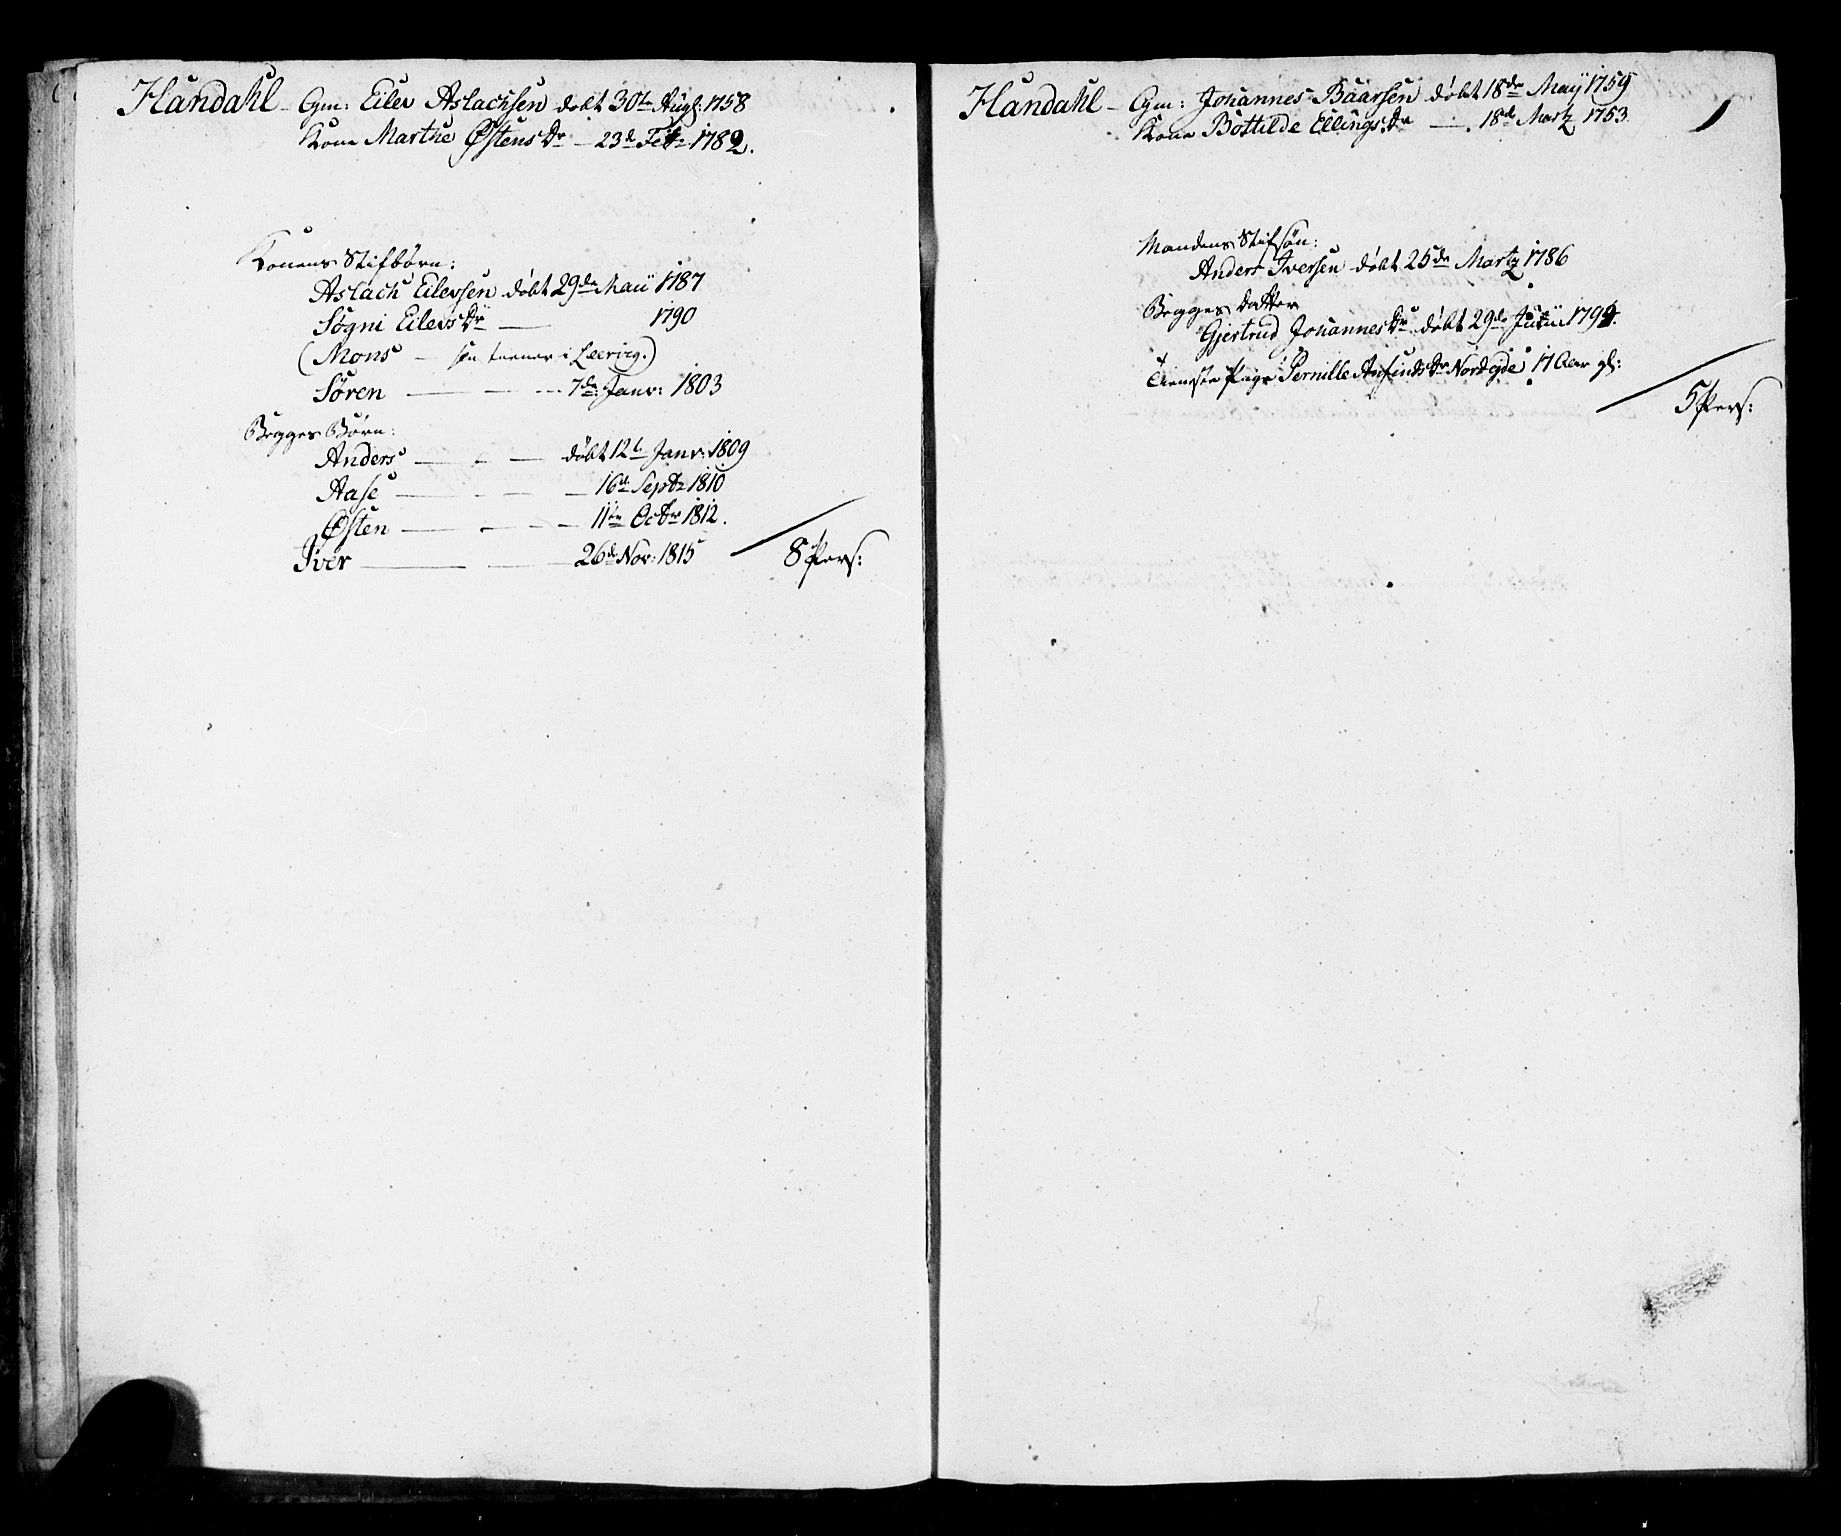 Handahl - Gm: Eilev Aslachsen døbt 30te Augs: 1758
Kone Marthe Østens dr - 23de Febr 1782.
Konens Stifbørn:
Aslach Eilevsen døbt 29de Maii 1787
Søgni Eilevs Dr — 1790
(Mons - som tiener i Leervig.)
Søren — 7de Janr: 1803
Begges Børn:
Anders — døbt 12te Janr: 1809
Aase — 16de Septr 1810
Østen — 11te Octbr 1812.
Iver — 26de Nov: 1815
8 Pers:
Handahl - Gm: Johannes Baarsen døbt 18de Maÿ 1759
Kone Bottilde Ellings dr — 18de Martz 1753.
Mandens Stifsøn:
Anders Iversen døbt 25de Martz 1786
Begges datter
Gjertrud Johannes dr døbt 29de Junii 1794.
Tieneste Pige Pernille Anfinds dr Nordejde 17 Aar gl:
5 Pers: